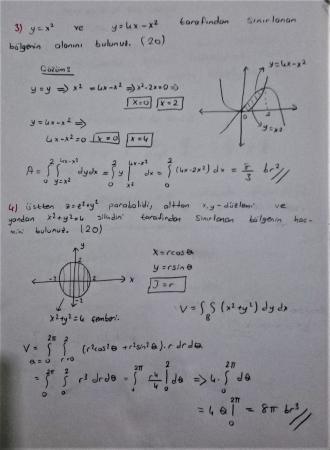 3) y=x² ve y=4x-x² tarafından sınırlanan
bölgenin alanını bulunuz. (20)
Çözüm:
y=y ⇒ x² = 4x-x² ⇒ x²-2x=0 ⇒
x=0 x=2
y=4x-x² ⇒
4x-x²=0 x=0 x=4
y=4x-x²
0 2
y=x²
A = ∫₀² ∫_{y=x²}^{4x-x²} dydx = ∫₀² y |_{x²}^{4x-x²} dx = ∫₀² (4x-2x²) dx = 8/3 br²
4) Üstten z=x²+y² parabolidi, alttan x,y-düzlemi ve
yandan x²+y²=4 silindiri tarafından sınırlanan bölgenin hac-
mini bulunuz. (20)
y
x
-2 2
x²+y²=4 çemberi.
x=rcosθ
y=rsinθ
J=r
V=∫∫_B (x²+y²) dy dx
V = ∫_{θ=0}^{2π} ∫_{r=0}^{2} (r²cos²θ + r²sin²θ). r dr dθ
= ∫₀^{2π} ∫₀² r³ dr dθ = ∫₀^{2π} r⁴/4 |₀² dθ ⇒ 4. ∫₀^{2π} dθ
= 4 θ |₀^{2π} = 8π br³